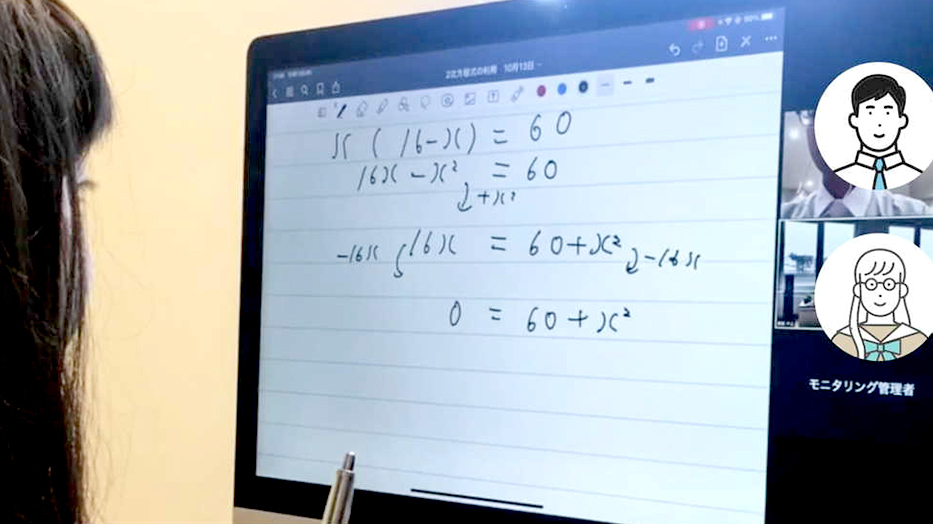 2次方程式の利用 10月13日
x(16-x) = 60
16x - x² = 60
+x²
-16x 16x = 60+x² -16x
0 = 60+x²
モニタリング管理者